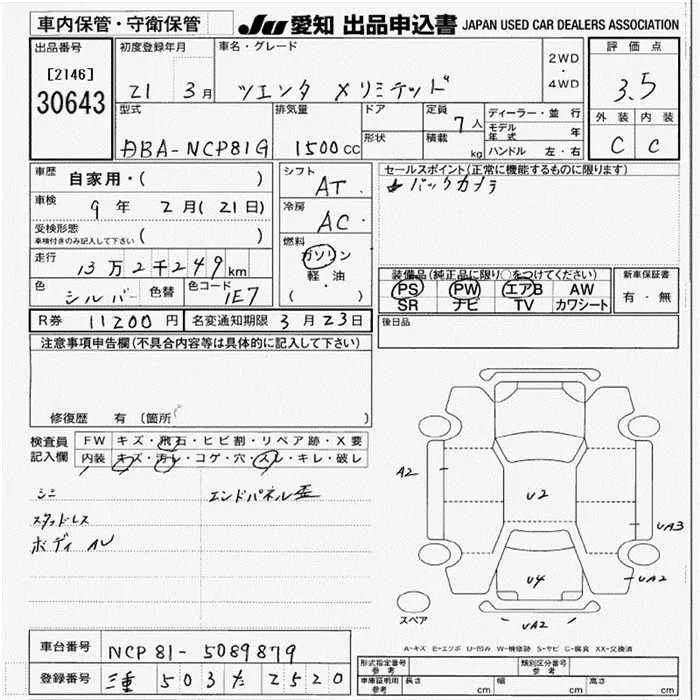 車内保管・守衛保管 JU 愛知 出品申込書 JAPAN USED CAR DEALERS ASSOCIATION
出品番号 初度登録年月 車名・グレード 2WD・4WD 評価点
[2146] 21 3月 ツエンタ Xリミテッド 3.5
30643 型式 排気量 ドア 定員 7人 ディーラー・並行 外装 内装
形状 積載 kg モデル年式 年
DBA-NCP81G 1500cc ハンドル 左・右 C C
車歴 自家用・( ) シフト AT セールスポイント(正常に機能するものに限ります)
バックカメラ
車検 9年 2月(21日) 冷房 AC
受検形態 ( )
車検付きのみ記入して下さい
燃料 ガソリン
走行 13万2千249km 軽・油 装備品(純正品に限り○をつけてください) 新車保証書
( ) PS PW エアB AW 有・無
色 シルバー 色替 色コード 1E7 SR ナビ TV カワシート
R券 11200円 名変通知期限 3月23日 後日品
注意事項申告欄(不具合内容等は具体的に記入して下さい)
修復歴 有(箇所 )
検査員 FW キズ・飛石・ヒビ割・リペア跡・X要
記入欄 内装 キズ・汚レ・コゲ・穴・スレ・キレ・破レ
シミ エンドパネル歪
スタッドレス
ボディ AU
A2
U2
UA3
U4
UA2
UA2
スペア
A-キズ E-エクボ U-凹み W-補修跡 S-サビ C-腐食 XX-交換済
車台番号 NCP81-5089879
登録番号 三重 503 た 2520
形式指定番号 参考 類別区分番号 参考
車庫証明用 参考 長さ cm 幅 cm 高さ cm